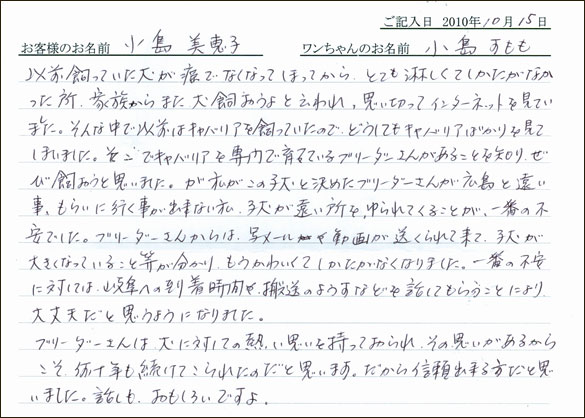 ご記入日 2010年10月15日
お客様のお名前 小島 美恵子 ワンちゃんのお名前 小島 すもも
以前飼っていた犬が癌でなくなってしまってから、とても淋しくてしかたがなか
った所、家族からまた犬飼おうよと言われ、思い切ってインターネットを見てい
ました。そんな中で以前はキャバリアを飼っていたので、どうしてもキャバリアばかりを見て
しまいました。そこでキャバリアを専門で育てているブリーダーさんがあることを知り、ぜ
ひ飼おうと思いました。が私がこの子犬と決めたブリーダーさんが広島と遠い
事、もらいに行く事が出来ない私、子犬が遠い所をゆられてくることが、一番の不
安でした。ブリーダーさんからは、写メールや動画が送くられて来て、子犬が
大きくなっていること等が分かり、もうかわいくてしかたがなくなりました。一番の不安
に対しては、岐阜への到着時間や、搬送のようすなどを話してもらうことにより、
大丈夫だと思うようになりました。
ブリーダーさんは、犬に対しての熱い思いを持っておられ、その思いがあるから
こそ、何十年も続けてこられたのだと思います。だから信頼出来る方だと思
いました。話しも、おもしろいですよ。